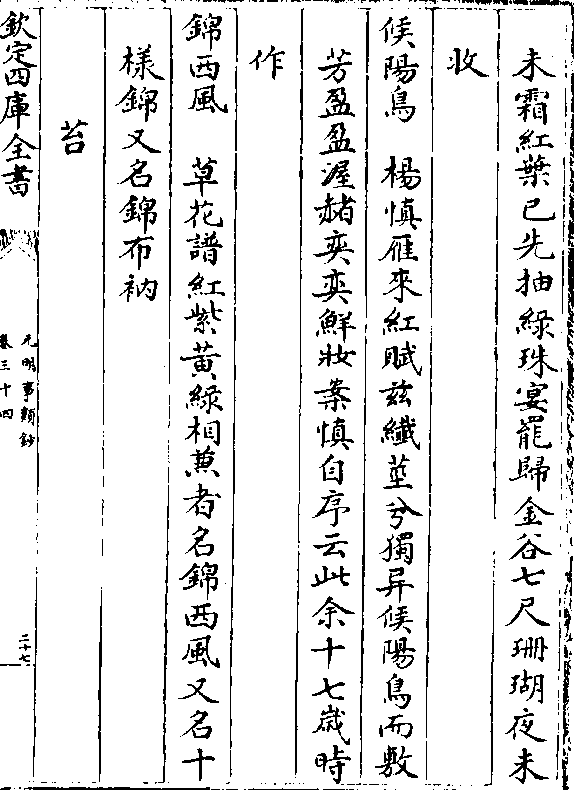 未霜紅葉已先抽綠珠宴罷歸金谷七尺珊瑚夜未
收
候陽鳥　楊慎雁來紅賦兹纖莖兮獨异候陽鳥而敷
芳盈盈渥赭奕奕鮮妝案慎自序云此余十七歲時
作
錦西風　草花譜紅紫黃綠相蒹者名錦西風又名十
様錦又名錦布衲
苔
欽定四庫全書
元明事類鈔
卷三十四
二十七